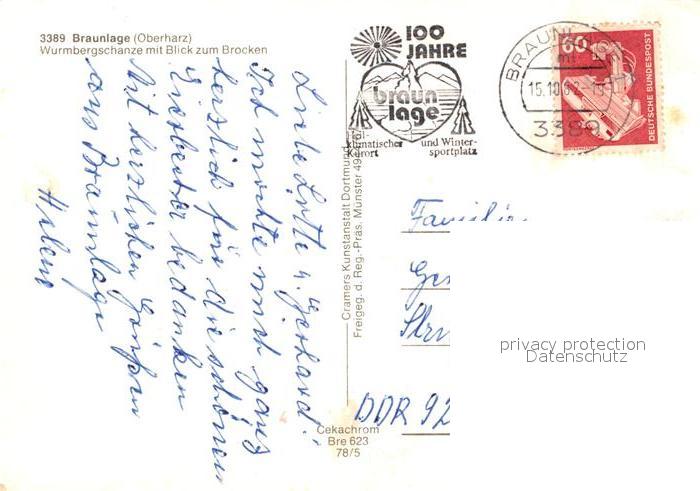 3389 Braunlage (Oberharz)
Wurmbergschanze mit Blick zum Brocken
Liebe Lotte u. Gerhard!
Ich möchte mich ganz
herzlich für die schönen
bedanken
Mit herzlichen Grüßen
aus Braunlage
Helene
Cramers Kunstanstalt Dortmund
Freigeg. d. Reg.-Präs. Münster 49
Cekachrom
Bre 623
78/5
100
JAHRE
braun
lage
Heil-
klimatischer
Kurort
und Winter-
sportplatz
BRAUNL
15.10
3389
60
DEUTSCHE BUNDESPOST
Familie
Ge
Str
DDR 92
privacy protection
Datenschutz